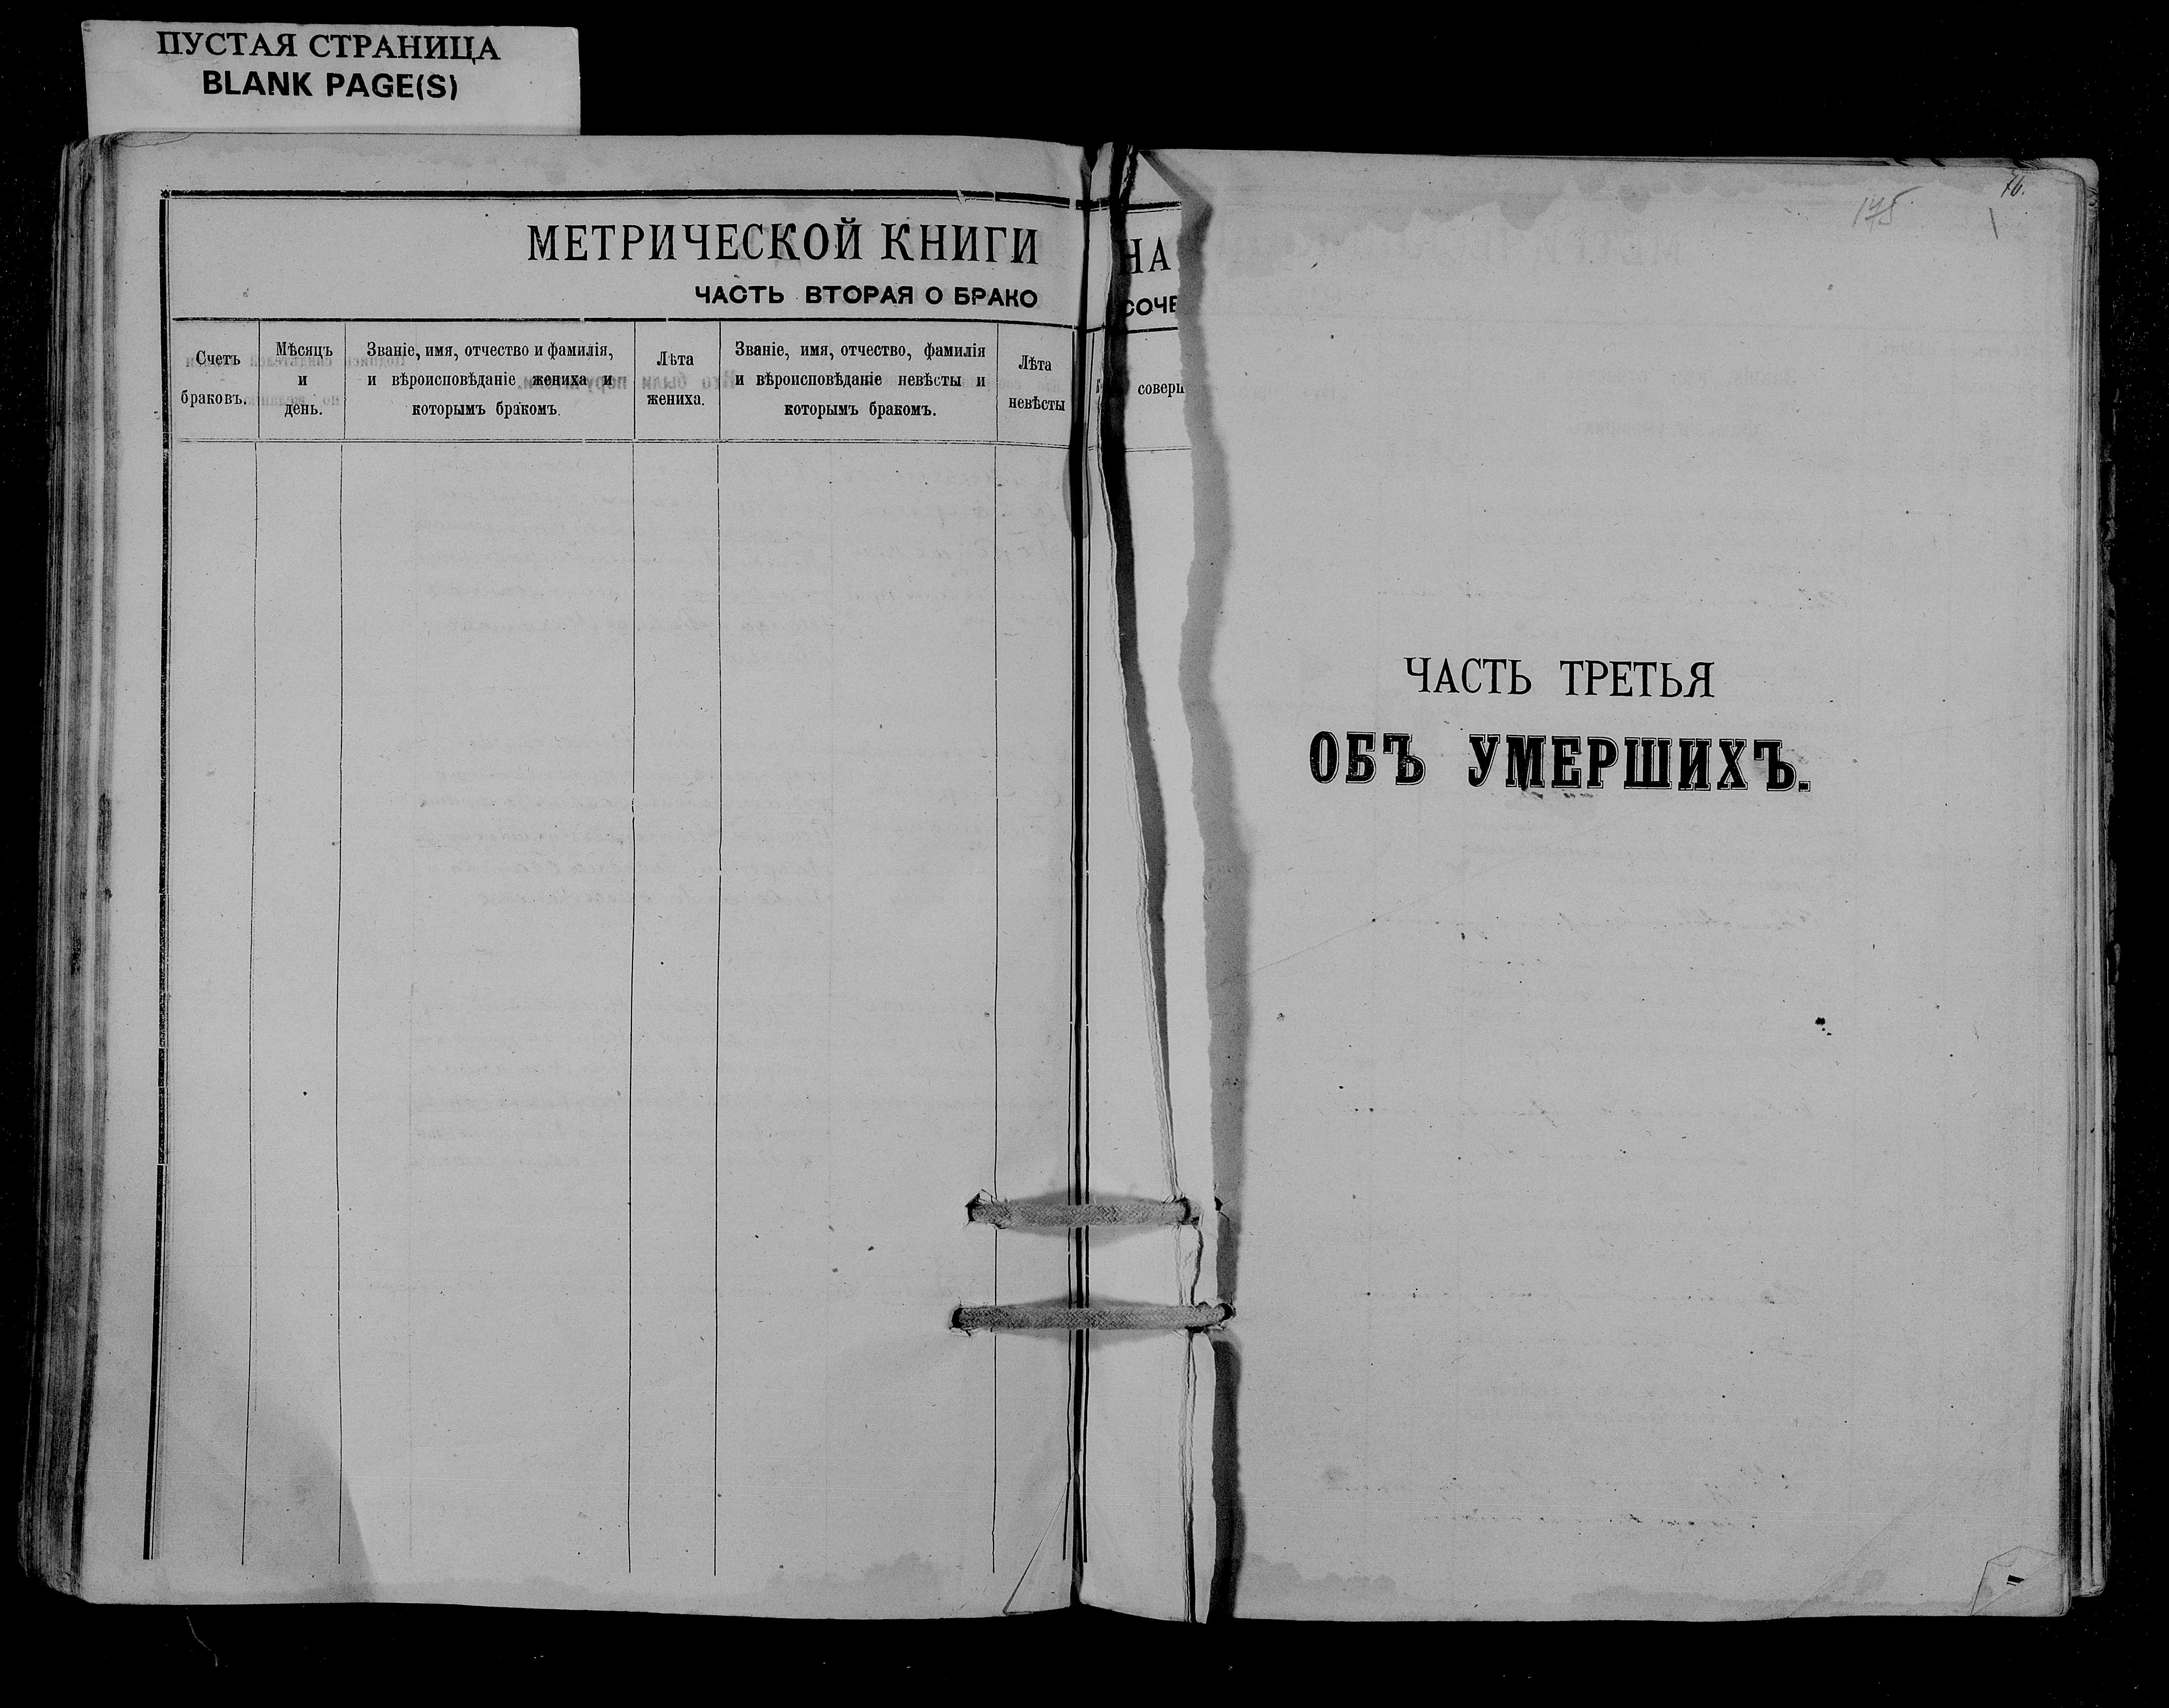 ПУСТАЯ СТРАНИЦА
BLANK PAGE(S)
МЕТРИЧЕСКОЙ КНИГИ
ЧАСТЬ ВТОРАЯ О БРАКО
Счетъ браковъ.
Мѣсяцъ и день.
Званіе, имя, отчество и фамилія,
и вѣроисповѣданіе жениха и
которымъ бракомъ.
Лѣта
жениха.
Званіе, имя, отчество, фамилія
и вѣроисповѣданіе невѣсты и
которымъ бракомъ.
Лѣта
невѣсты
НА
СОЧЕ
соверш
175
76.
ЧАСТЬ ТРЕТЬЯ
ОБЪ УМЕРШИХЪ.